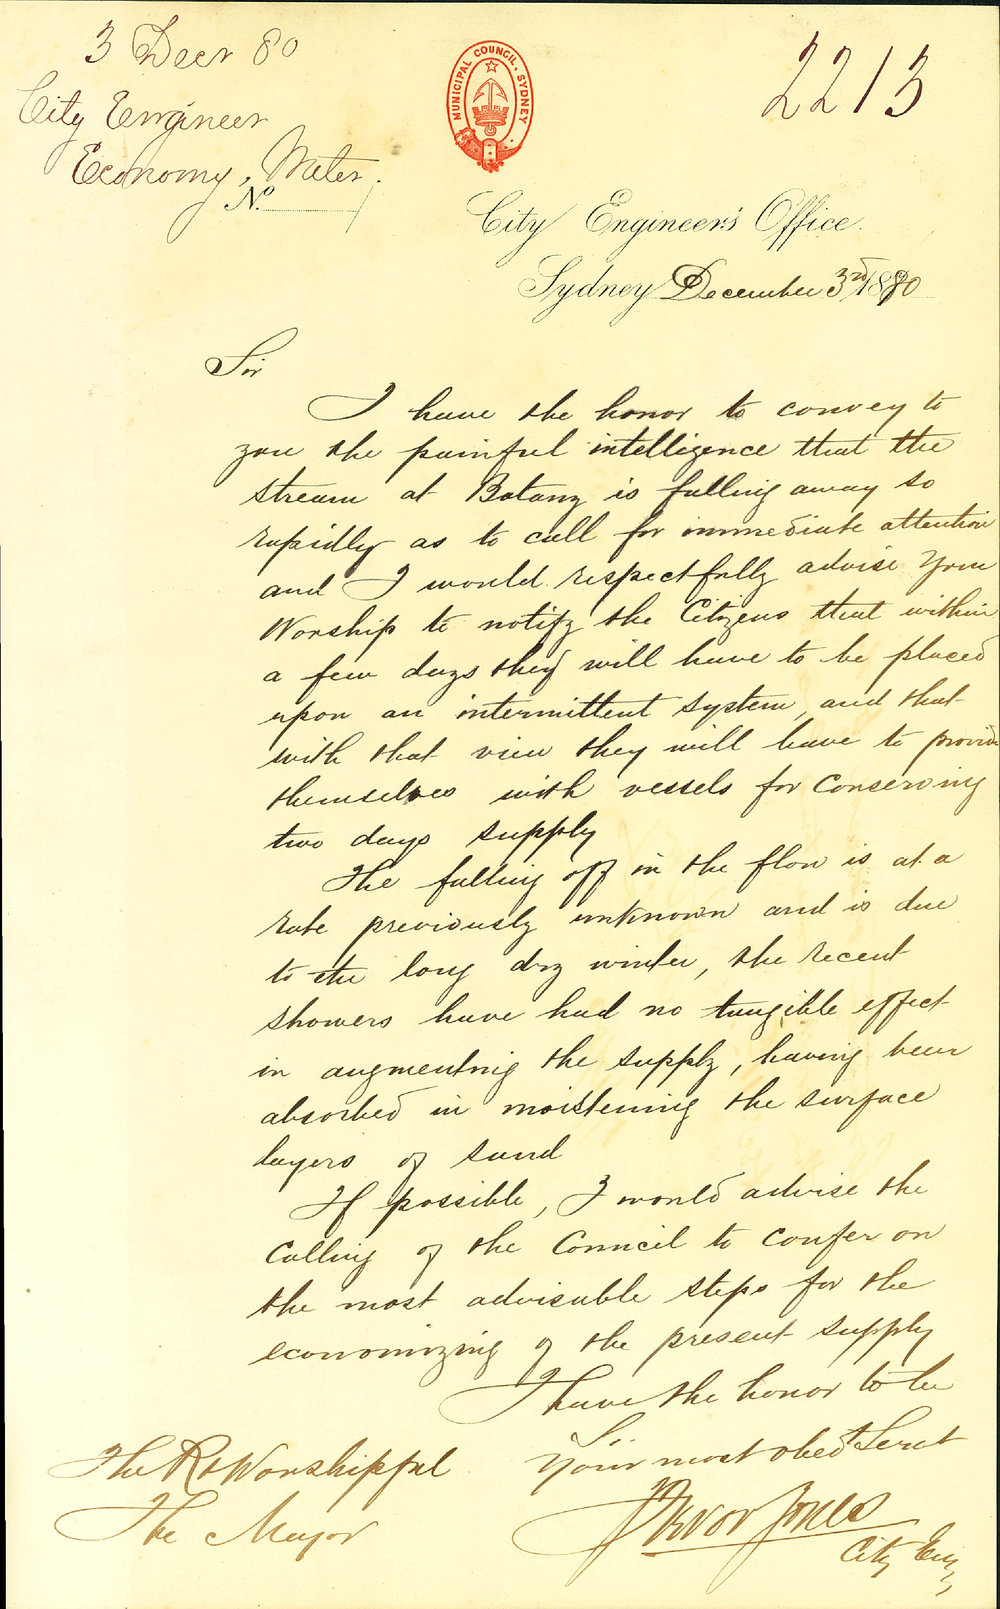 3 Decr 80
2213
City Engineer
Economy, Water.
No.
MUNICIPAL COUNCIL, SYDNEY
City Engineer's Office.
Sydney December 3rd 1880
Sir
I have the honor to convey to
you the painful intelligence that the
stream at Botany is falling away so
rapidly as to call for immediate attention
and I would respectfully advise Your
Worship to notify the Citizens that within
a few days they will have to be placed
upon an intermittent system, and that
with that view they will have to provide
themselves with vessels for Conserving
two days supply
The falling off in the flow is at a
rate previously unknown and is due
to the long dry winter, the recent
showers have had no tangible effect
in augmenting the supply, having been
absorbed in moistening the surface
layers of sand
If possible, I would advise the
Calling of the Council to Confer on
the most advisable steps for the
economizing of the present supply
I have the honor to be
Sir
Your most obedt Servt
The Rt Worshipful
The Mayor
Trevor Jones
City Eng